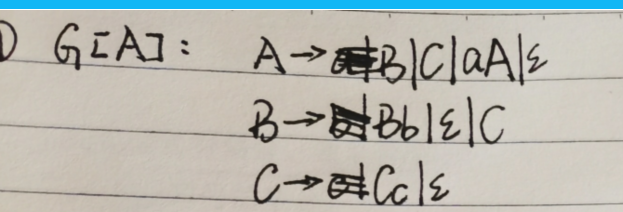 G[A]: A→B|C|aA|ε
B→Bb|ε|C
C→Cc|ε